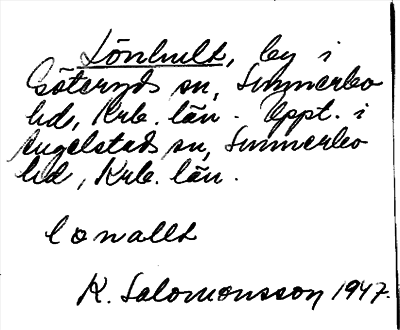 Lönhult, by i
Göteryds sn, Sunnerbo
hd, Krb. län. Uppt. i
Angelstads sn, Sunnerbo
hd, Krb. län.
lonallt
K. Salomonsson 1947.